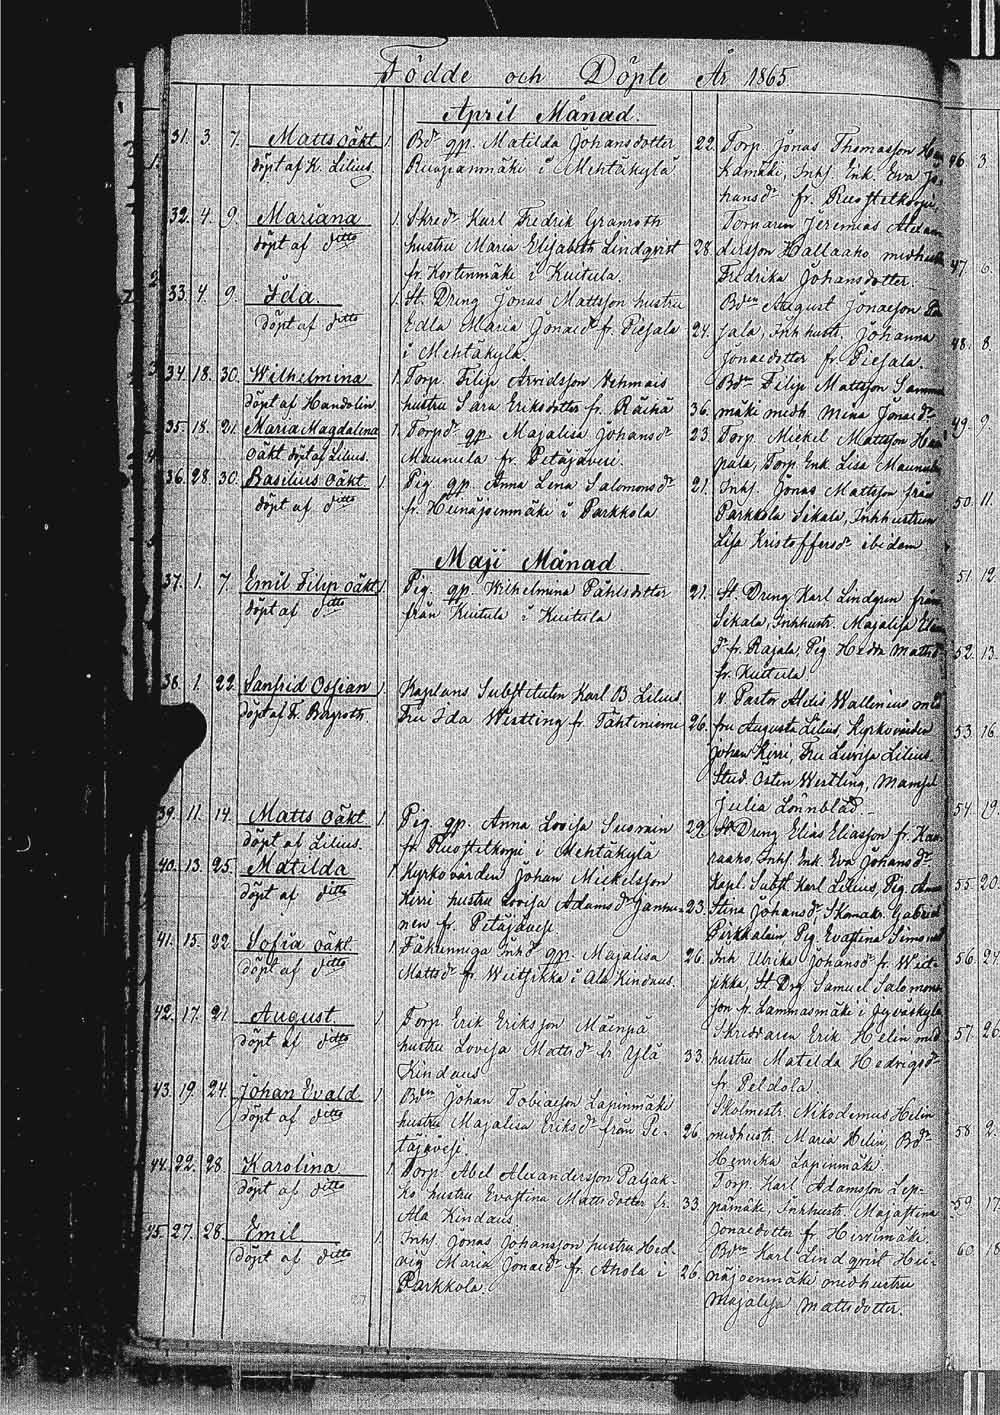 Födde och Döpte År 1865.
April Månad.
31. 3. 7. Matts oäkt 1. Bdr qp. Matilda Johansdotter 22. Torp. Jonas Thomasson
döpt af K. Lilius. i Mehtäkylä Inhs. Enk. Eva
hansdr fr. Ruostetkorpi.
32. 4. 9. Mariana 1. Skrdr Karl Fredrik Granroth Torparen Jeremias
döpt af ditto hustru Maria Elisabeth Lindqvist 28. dersson Hallaaho med
fr. Kortenmäki i Kuitula. Fredrika Johansdotter.
33. 4. 9. Ida. 1. St. Dreng Jonas Mattsson hustru Bden August Jonasson
döpt af ditto Edla Maria Jonasdr fr. Piesala 24. jala, Inh hustr. Johanna
i Mehtäkylä. Jonaedotter fr. Piesala.
34. 18. 30. Wilhelmina 1. Torp. Filip Arvidsson Vehmais Bdn Filip Mattsson
döpt af Handolin hustru Sara Eriksdotter fr. Räihä 36. mäki medh. Mina Jonaedr
35. 18. 21. Maria Magdalina 1. Torpdr qp. Majalisa Johansdr 23. Torp. Mickel Mattsson
oäkt döpt af Lilius. Maunula fr. Petäjävesi. pala, Torp. Enk Lisa
36. 28. 30. Basilius oäkt 1. Pig. qp. Anna Lena Salomonsdr 21. Inhs. Jonas Mattsson från
döpt af ditto fr. Heinäjoenmäki i Parkkola Parkkola Sikala, Inhhustrun
Lisa Kristoffersdr ibidem
Maji Månad.
37. 1. 7. Emil Filip oäkt 1. Pig. qp. Wilhelmina Påhlsdotter 21. St. Dreng Karl Lindgren från
döpt af ditto från Kuitula i Kuitula Sikala, Inhhustr. Majalisa
dr fr. Rajala, Pig. Hedda
fr. Kuitula
38. 1. 22. Sanfrid Ossian 1. Kaplans Substituten Karl B. Lilius v. Pastor Alexis Wallenius
döpt af F. Bergroth. Fru Ida Westling fr. Tähtiniemi 26. fru Augusta Lilius, Kyrkovärden
Johan Kirri, Fru Lovisa Lilius
Stud. Östen Westling, Mamsel
Julia Lönnblad.
39. 11. 14. Matts oäkt 1. Pig. qp. Anna Lovisa 29. St. Dreng Elias Eliasson fr.
döpt af Lilius. fr. Ruostetkorpi i Mehtäkylä raaho, Inhs. Enk. Eva Johansdr
40. 13. 25. Matilda 1. Kyrkovärden Johan Mickelsson Kapl. Subst. Karl Lilius, Pig.
döpt af ditto Kirri hustru Lovisa Adamsdr 23. Stina Johansdr Skomak. Gabriel
nen fr. Petäjävesi. Pirkkalain Pig. Evastina
41. 15. 22. Sofia oäkt 1. Fäkunniga Inhdr qp. Majalisa 26. Inh. Ulrika Johansdr fr.
döpt af ditto Mattsdr fr. i Ala Kindaus. St. Drg Samuel Salomons
son fr. Lammasmäki i Jyväskylä
42. 17. 21. August 1. Torp. Erik Eriksson Mäenpä Skreddaren Erik Helin med
döpt af ditto hustru Lovisa Mattsdr fr. Ylä 33. hustru Matilda Hedvigsdr
Kindaus fr. Peldola.
43. 19. 24. Johan Evald 1. Bden Johan Tobiaeson Lapinmäki Skolmestr. Nikodemus Helin
döpt af ditto hustru Majalisa Eriksdr från Pe- 26. medhustr. Maria Helin, Bdr
täjävesi. Henrika Lapinmäki.
44. 22. 28. Karolina 1. Torp. Abel Alexandersson Paljak- Torp. Karl Adamsson Lep-
döpt af ditto ko hustru Evastina Mattsdotter fr. 33. pämäki, Inhhustr. Majastina
Ala Kindaus. Jonaedotter fr. Hirvimäki.
45. 27. 28. Emil 1. Inhs. Jonas Johansson hustru Hed- Bden Karl Lindqvist Hei-
döpt af ditto vig Maria Jonaedr fr. Ahola i 26. näjoenmäki medhustru
Parkkola. Majalisa Mattsdotter.
46. 3.
47. 6.
48. 8.
49. 9.
50. 11.
51. 12.
52. 13.
53. 16.
54. 19.
55. 20.
56. 24.
57. 26.
58. 2.
59. 17.
60. 18